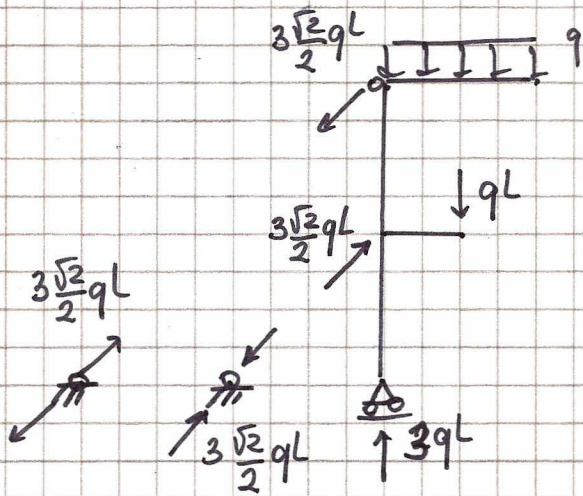 3√2/2 qL
q
qL
3√2/2 qL
3√2/2 qL
3√2/2 qL
3qL